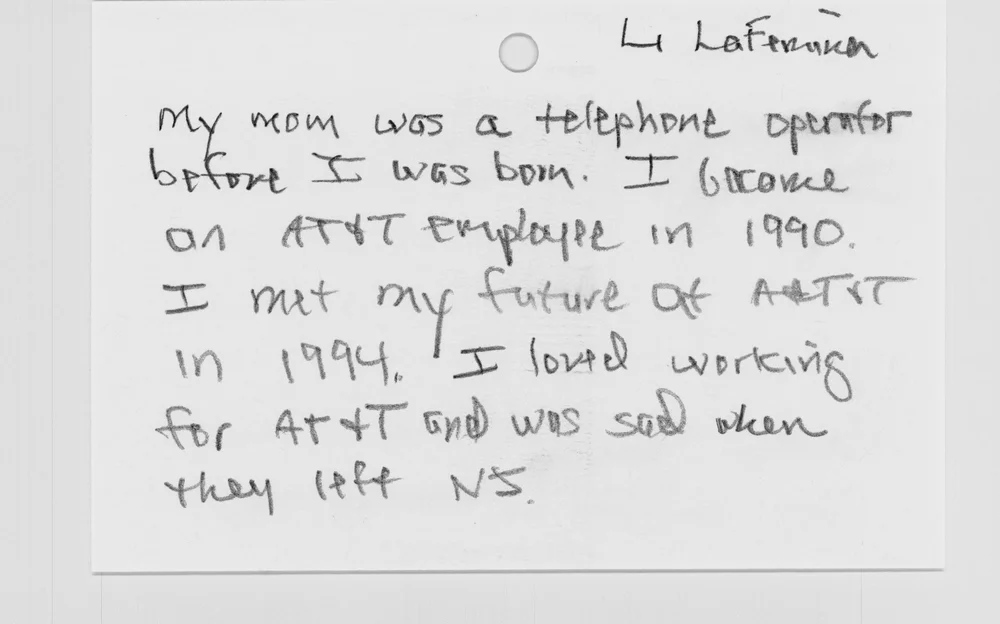 My mom was a telephone operator
before I was born. I become
an AT&T employee in 1990.
I met my future at A&T&T
in 1994. I loved working
for AT&T and was sad when
they left NJ.